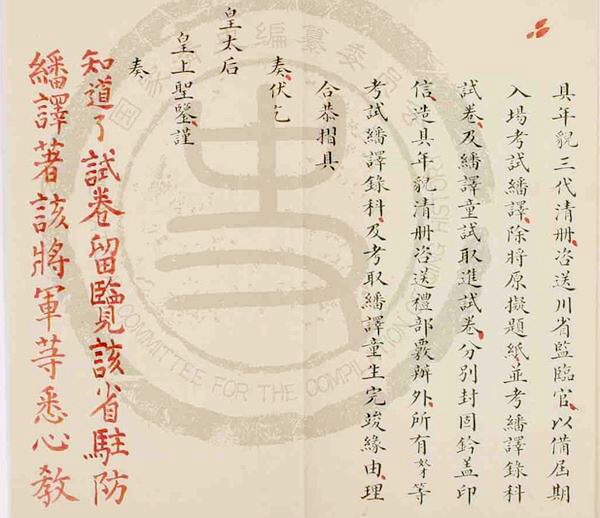 具年貌三代清冊咨送川省監臨官以備屆期
入場考試繙譯除將原擬題紙並考繙譯錄科
試卷及繙譯童試取進試卷分別封固鈐蓋印
信造具年貌清冊咨送禮部覈辦外所有奴才等
考試繙譯錄科及考取繙譯童生完竣緣由理
合恭摺具
奏伏乞
皇太后
皇上聖鑒謹
奏
知道了試卷留覽該省駐防
繙譯著該將軍等悉心教
編纂委
史
COMMITTEE FOR THE COMPILATION